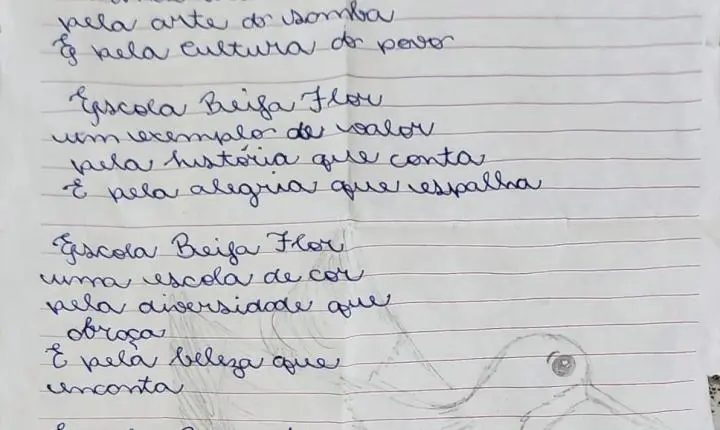 pela arte do samba
E pela cultura do povo
Escola Beija Flor
um exemplo de valor
pela história que conta
E pela alegria que espalha
Escola Beija Flor
uma escola de cor
pela diversidade que
abraça
E pela beleza que
encanta